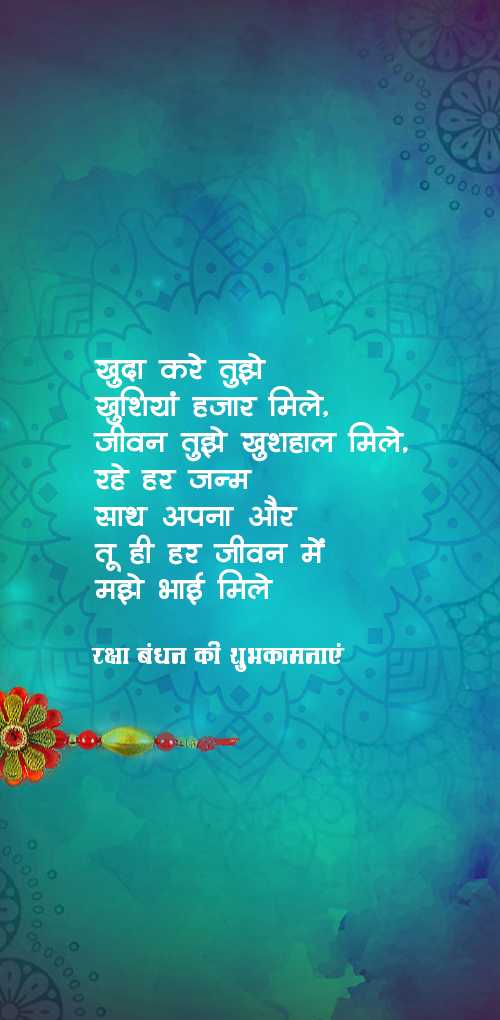 खुदा करे तुझे
खुशियां हजार मिले,
जीवन तुझे खुशहाल मिले,
रहे हर जन्म
साथ अपना और
तू ही हर जीवन में
मझे भाई मिले
रक्षा बंधन की शुभकामनाएं